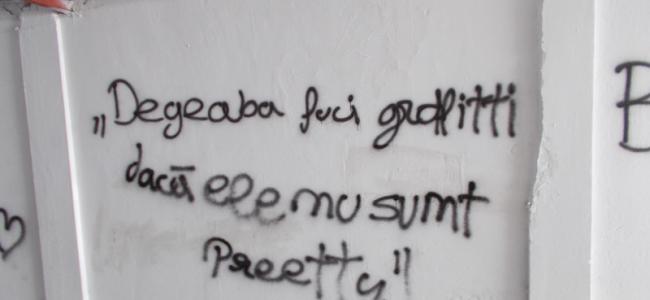 „Degeaba faci graffitti
dacă ele nu sunt
Preetty"
B